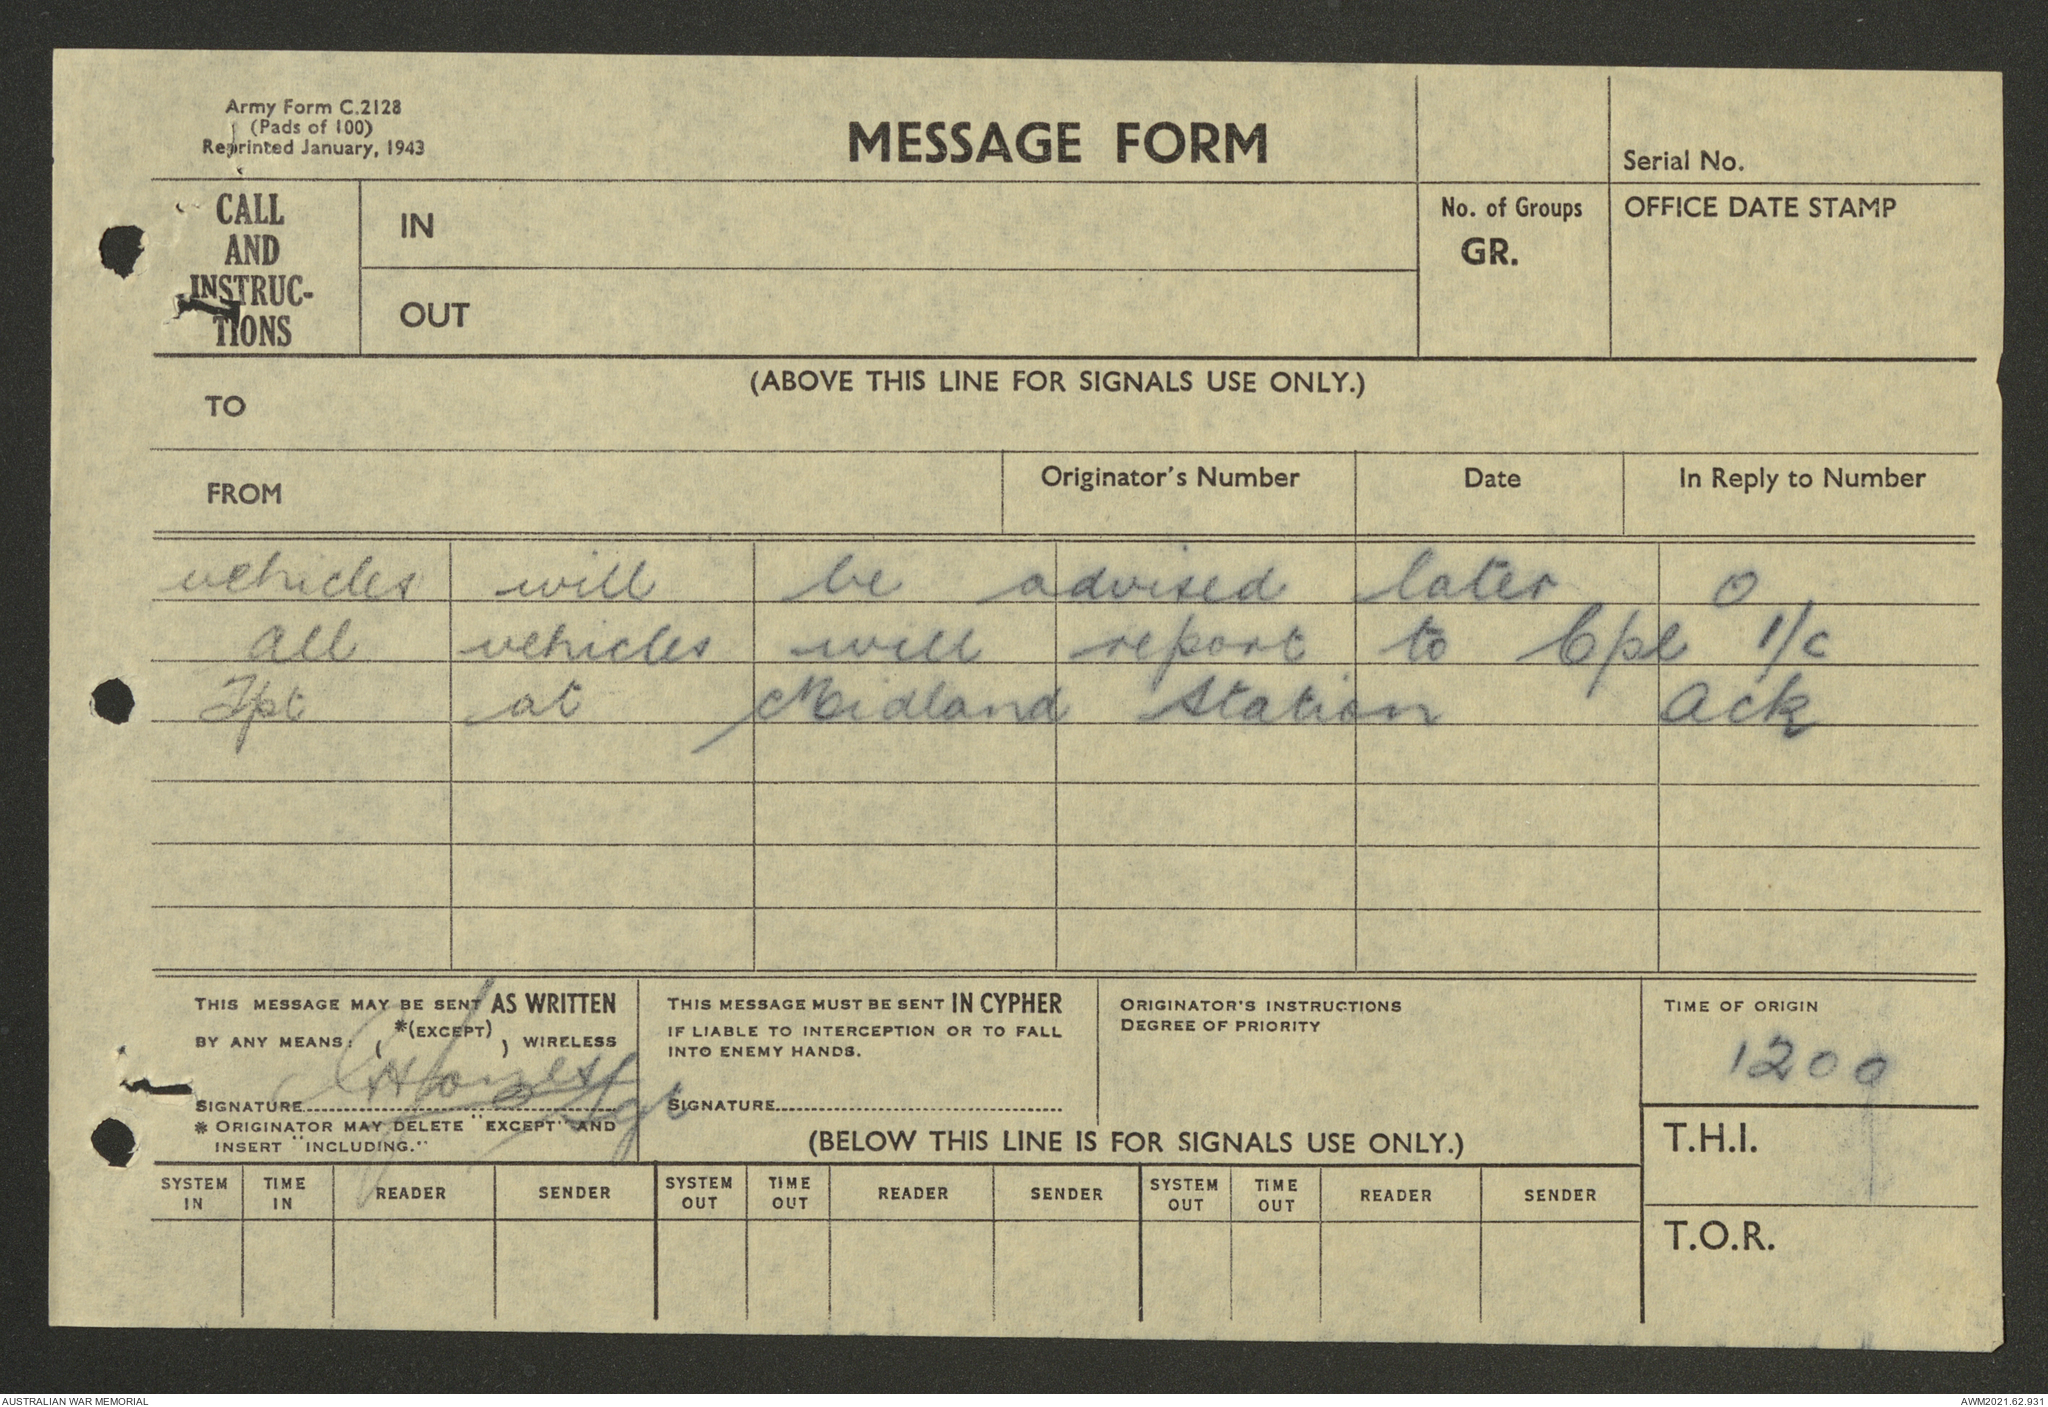 Army Form C.2128
(Pads of 100)
Reprinted January, 1943
MESSAGE FORM
Serial No.
CALL
AND
INSTRUC-
TIONS
IN
OUT
No. of Groups
GR.
OFFICE DATE STAMP
(ABOVE THIS LINE FOR SIGNALS USE ONLY.)
TO
FROM
Originator's Number
Date
In Reply to Number
vehicles will be advised later O
All vehicles will report to Cpl I/c
Tpt at Midland Station Ack
THIS MESSAGE MAY BE SENT AS WRITTEN
BY ANY MEANS: ( *(EXCEPT) ) WIRELESS
SIGNATURE
Sgt
* ORIGINATOR MAY DELETE "EXCEPT" AND
INSERT "INCLUDING."
THIS MESSAGE MUST BE SENT IN CYPHER
IF LIABLE TO INTERCEPTION OR TO FALL
INTO ENEMY HANDS.
SIGNATURE
ORIGINATOR'S INSTRUCTIONS
DEGREE OF PRIORITY
TIME OF ORIGIN
1200
(BELOW THIS LINE IS FOR SIGNALS USE ONLY.)
T.H.I.
T.O.R.
SYSTEM IN TIME IN READER SENDER SYSTEM OUT TIME OUT READER SENDER SYSTEM OUT TIME OUT READER SENDER
AUSTRALIAN WAR MEMORIAL
AWM2021.62.931